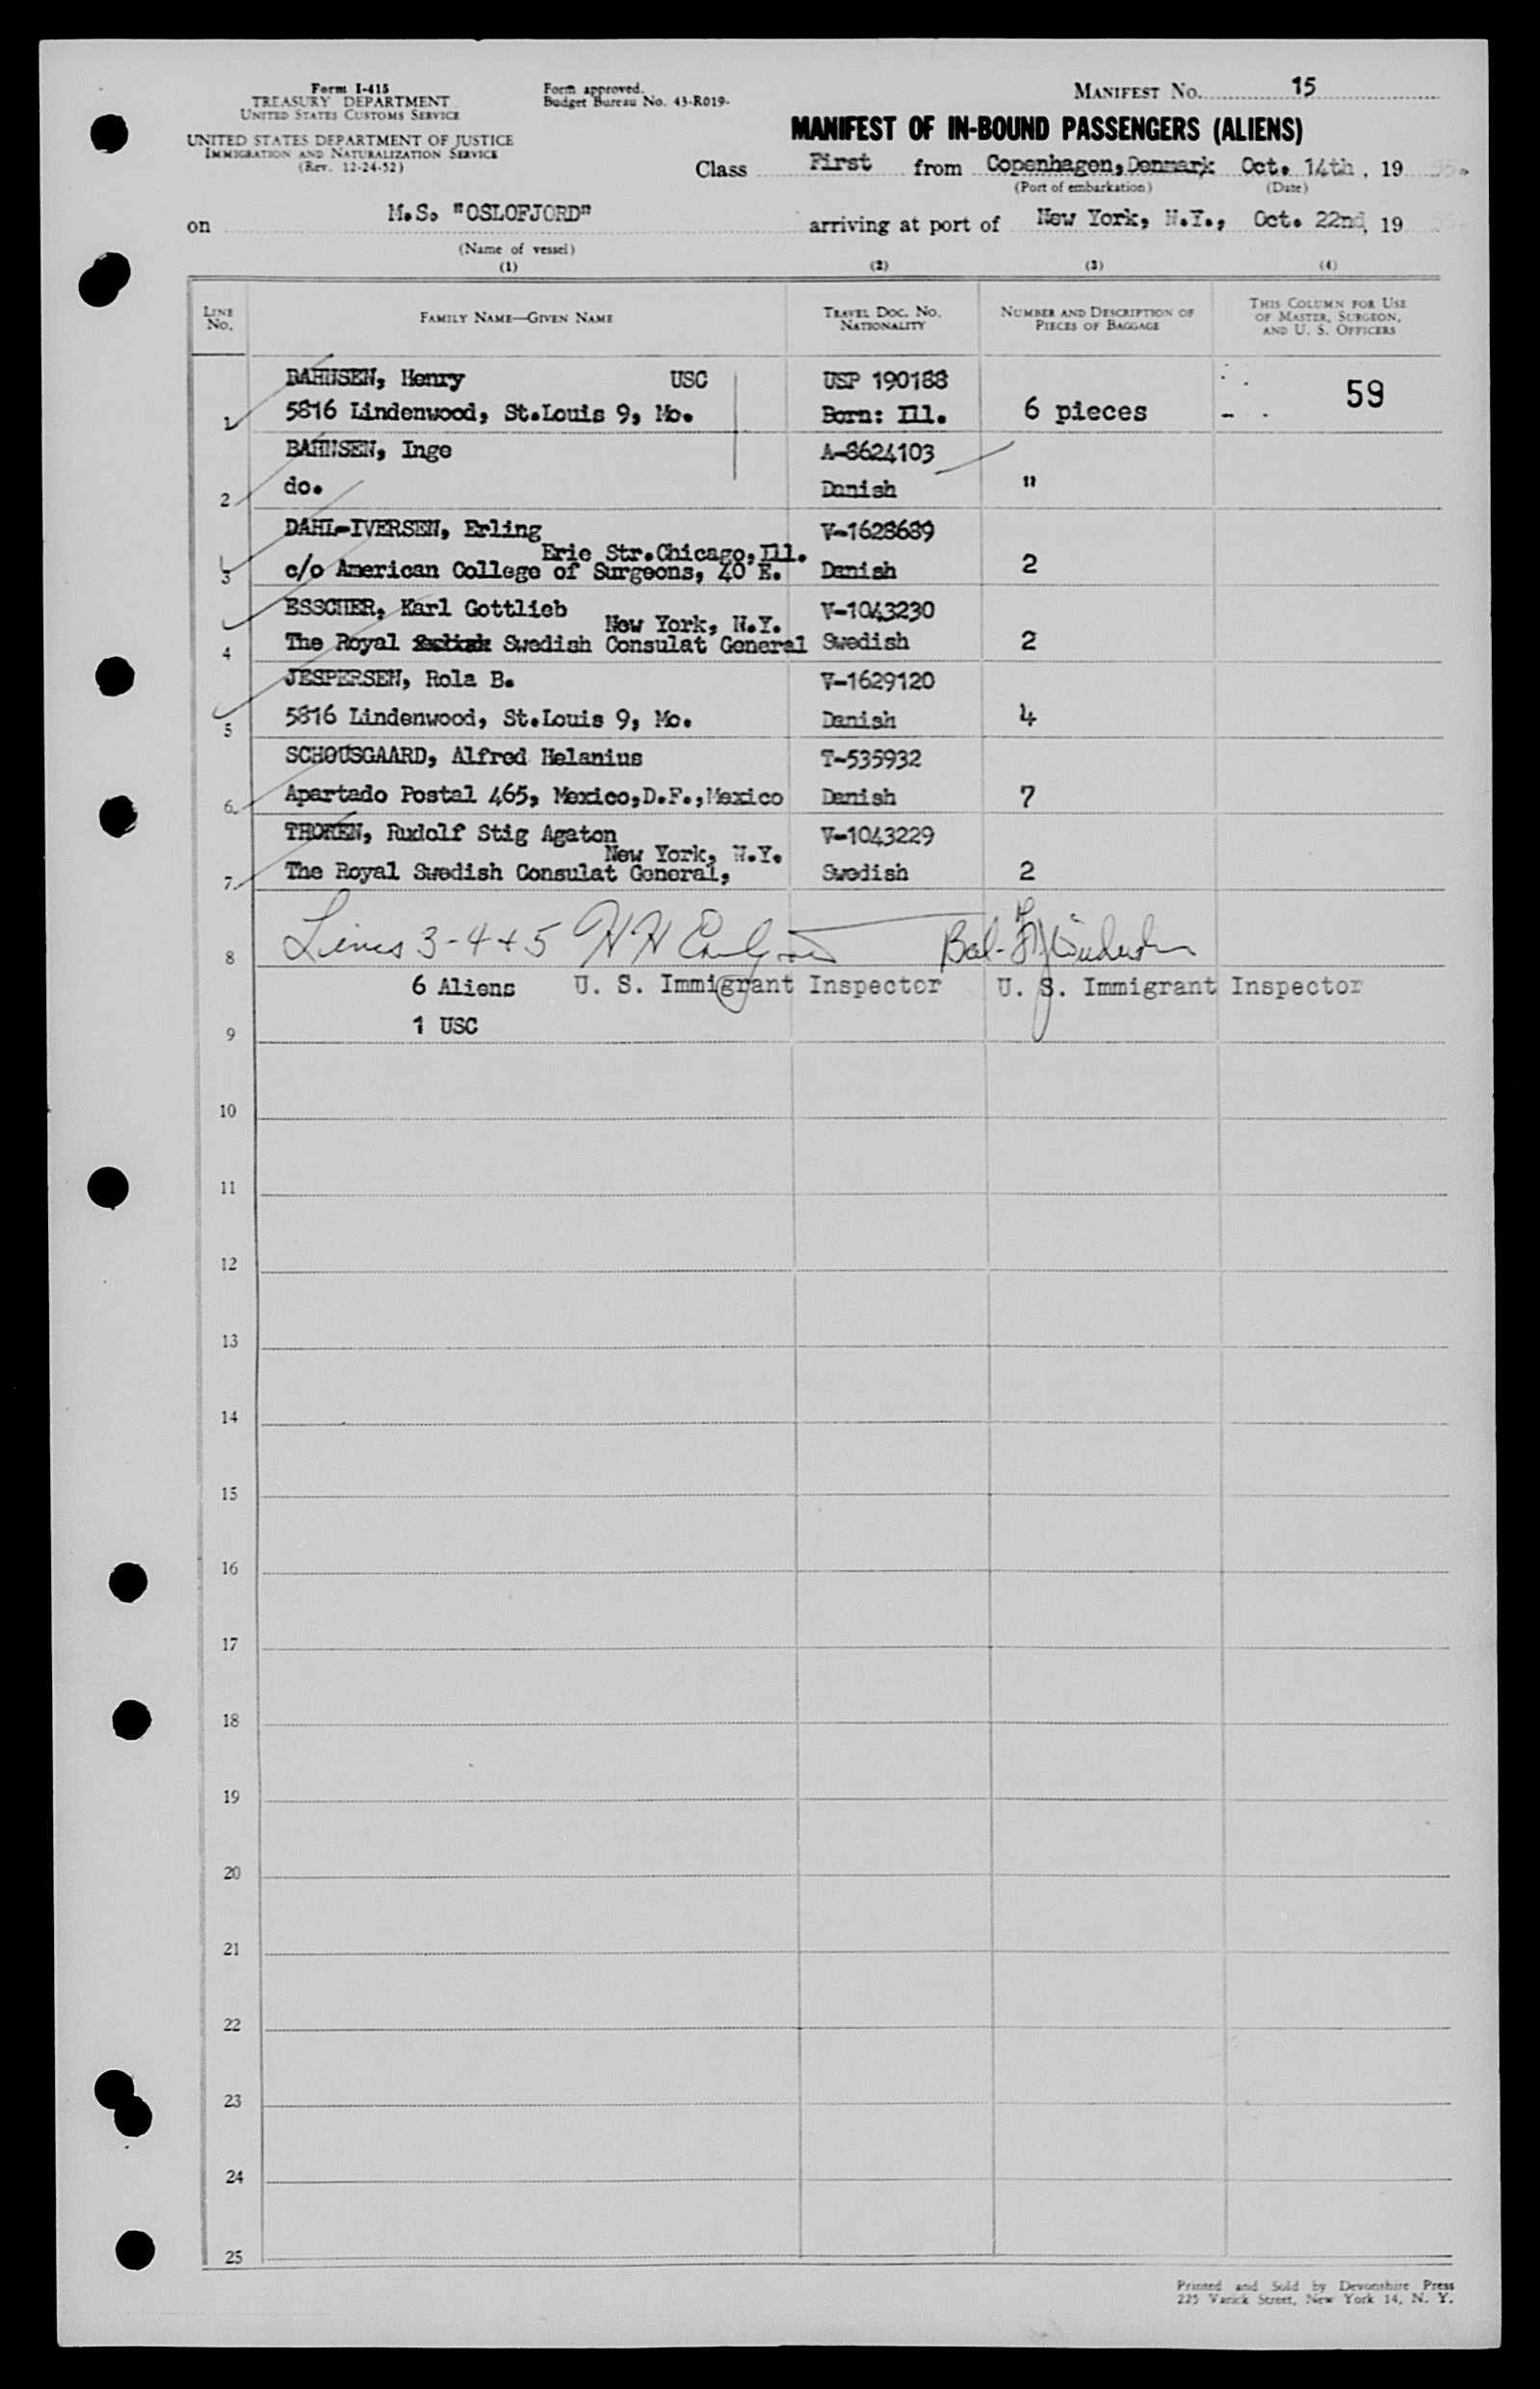 Form I-415
TREASURY DEPARTMENT
UNITED STATES CUSTOMS SERVICE
UNITED STATES DEPARTMENT OF JUSTICE
IMMIGRATION AND NATURALIZATION SERVICE
(Rev. 12-24-52)
Form approved.
Budget Bureau No. 43-R019-
MANIFEST NO. 15
MANIFEST OF IN-BOUND PASSENGERS (ALIENS)
Class First from Copenhagen, Denmark Oct. 14th, 19
(Port of embarkation) (Date)
on M.S. "OSLOFJORD" arriving at port of New York, N.Y., Oct. 22nd, 19
(Name of vessel)
(1) (2) (3) (4)
LINE NO. FAMILY NAME—GIVEN NAME TRAVEL DOC. NO. NATIONALITY NUMBER AND DESCRIPTION OF PIECES OF BAGGAGE THIS COLUMN FOR USE OF MASTER, SURGEON, AND U. S. OFFICERS
BAHNSEN, Henry USC USP 190188 59
1 5816 Lindenwood, St.Louis 9, Mo. Born: Ill. 6 pieces
BAHNSEN, Inge A-8624103
2 do. Danish "
DAHL-IVERSEN, Erling V-1628689
Erie Str.Chicago, Ill.
3 c/o American College of Surgeons, 40 E. Danish 2
ESSCHER, Karl Gottlieb V-1043230
New York, N.Y.
4 The Royal Swedish Consulat General Swedish 2
JESPERSEN, Rola B. V-1629120
5 5816 Lindenwood, St.Louis 9, Mo. Danish 4
SCHOUSGAARD, Alfred Helanius T-535932
6 Apartado Postal 465, Mexico,D.F.,Mexico Danish 7
THOREN, Rudolf Stig Agaton V-1043229
New York, N.Y.
7 The Royal Swedish Consulat General, Swedish 2
8 Lines 3-4+5 H H Bal-
6 Aliens U. S. Immigrant Inspector U. S. Immigrant Inspector
9 1 USC
10
11
12
13
14
15
16
17
18
19
20
21
22
23
24
25
Printed and Sold by Devonshire Press
225 Varick Street, New York 14, N. Y.